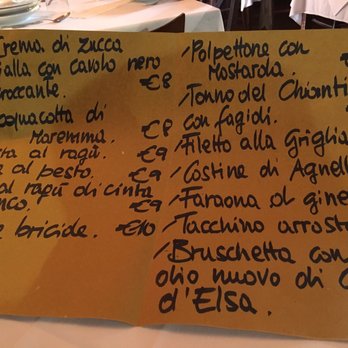 Crema di zucca
ialla con cavolo nero
croccante. €8
cquacotta di
Maremma. €8
ta al ragù. €9
e al pesto. €9
al ragù di cinta
nco. €9
e briciole. €10
/Polpettone con
Mostarda.
/Tonno del Chianti
con fagioli.
/Filetto alla Griglia
/Costine di Agnell
/Faraona al gine
/Tacchino arrosto
/Bruschetta con
olio nuovo di
d'Elsa.